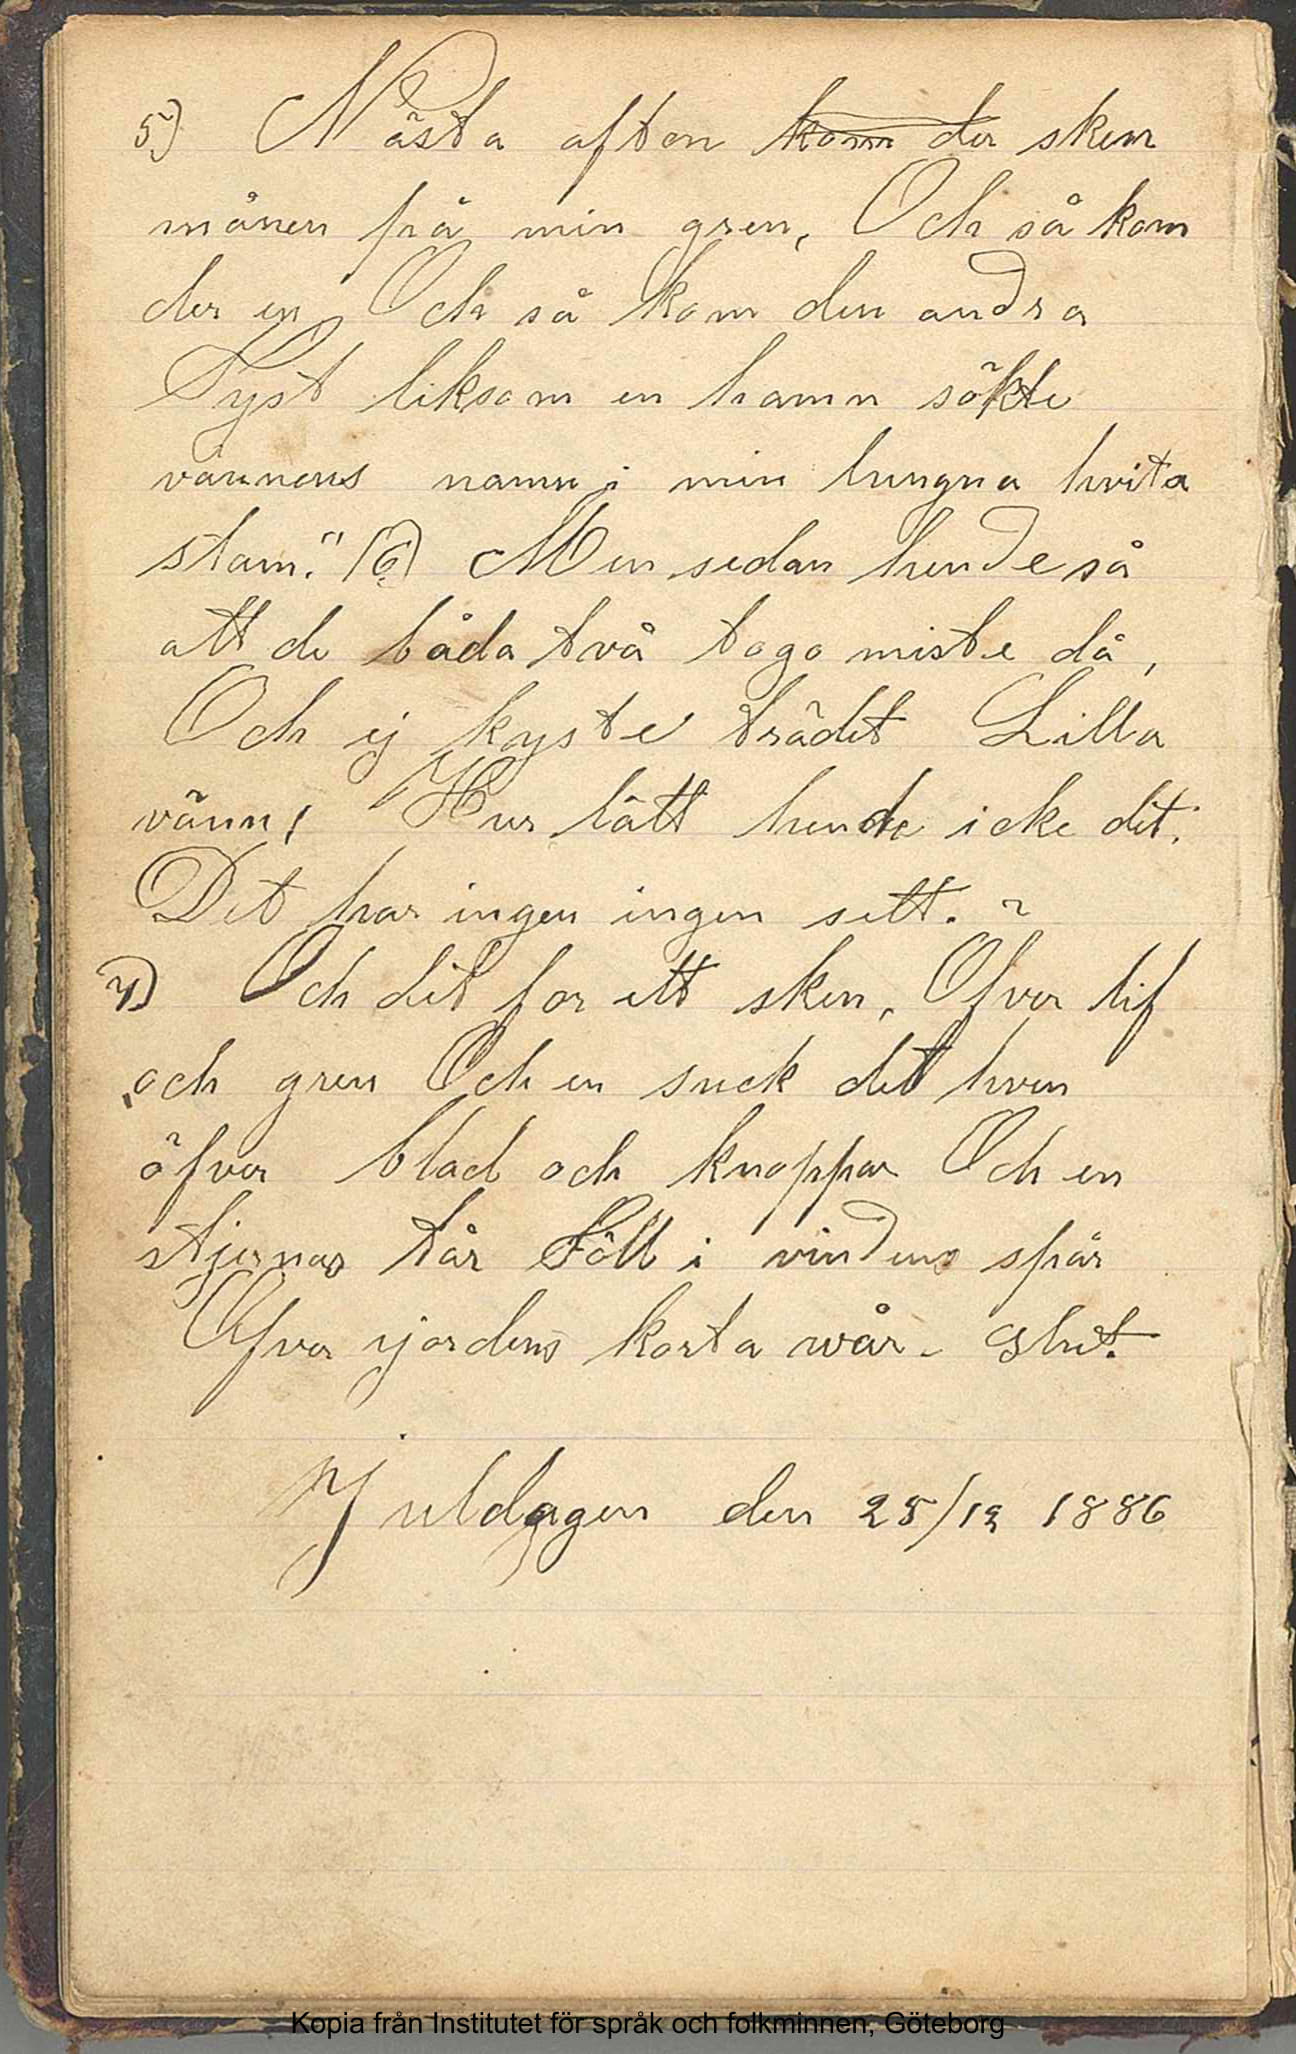 5) Nästa afton kom der sken
månen frå min gren, Och så kom
der en Och så kom den andra
Tyst liksom en hamn sökte
vännens namn i min hungna hvita
stam." (6) Men sedan hende så
att de båda två togo miste då,
Och ej kyste trädet Lilla
vänn! Hur lätt hende icke det.
Det har ingen ingen sett. ~
7) Och det for ett sken, Öfver lif
och gren Och en suck det hven
öfver blad och knoppar Och en
stjernas tår Föll i vindens spår
Öfver jordens korta wår. Slut.
Juldagen den 25/12 1886
Kopia från Institutet för språk och folkminnen, Göteborg